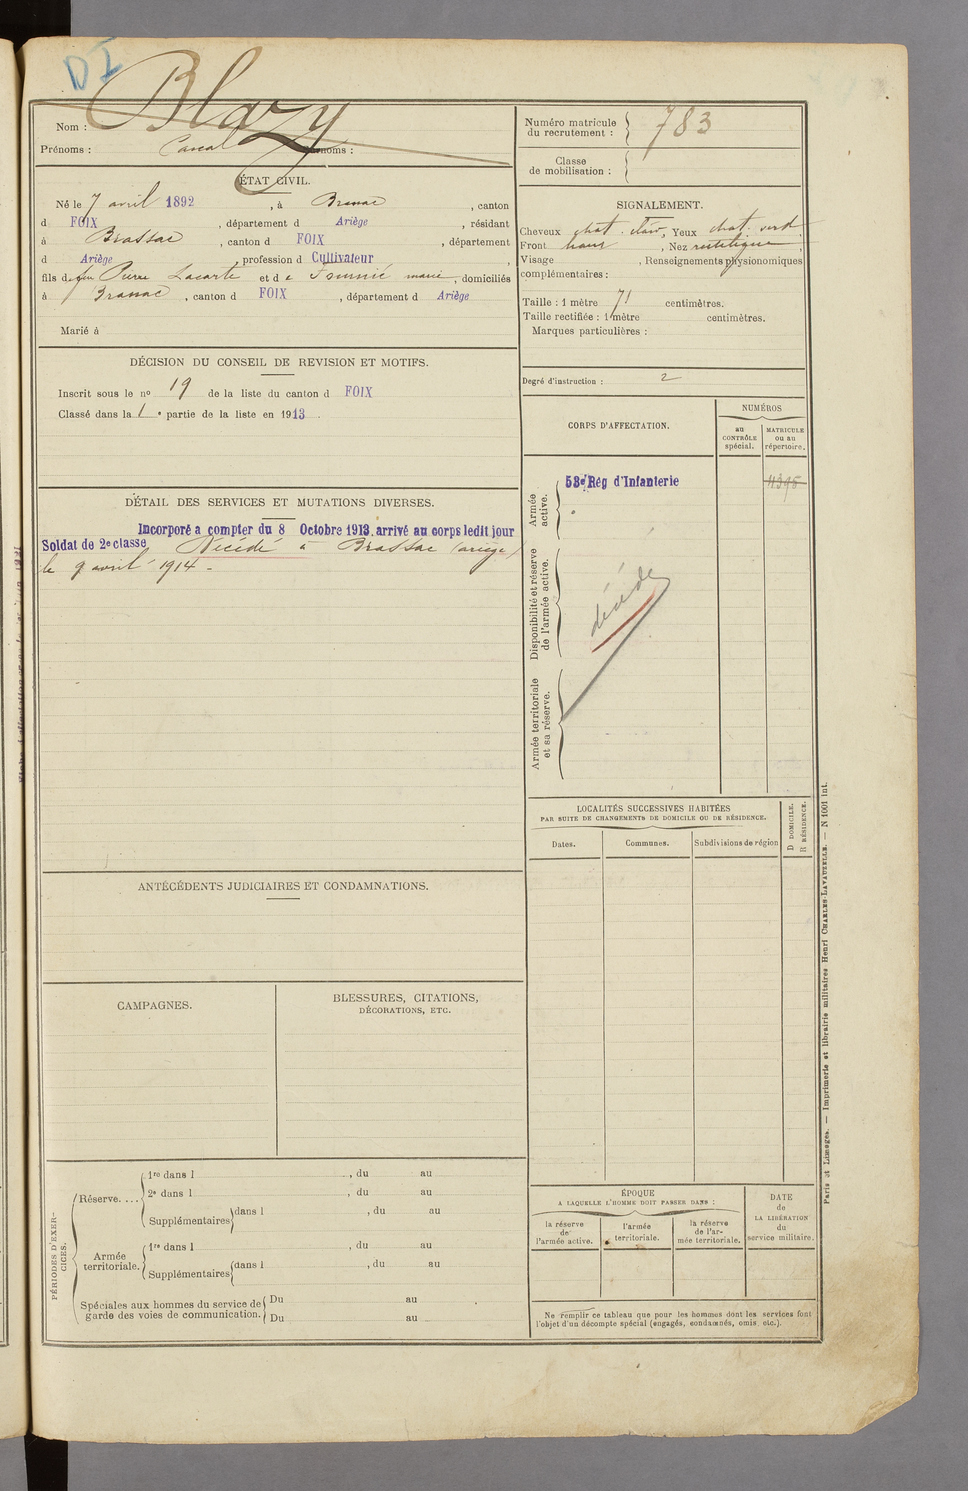 DI
Nom : Blazy
Prénoms : Pascal Surnoms :
ÉTAT CIVIL.
Né le 7 avril 1892, à Brassac, canton
d FOIX, département d Ariège, résidant
à Brassac, canton d FOIX, département
d Ariège, profession d Cultivateur,
fils de feu Pierre Lacarte et de Fournié marie, domiciliés
à Brassac, canton d FOIX, département d Ariège
Marié à
DÉCISION DU CONSEIL DE REVISION ET MOTIFS.
Inscrit sous le no 19 de la liste du canton d FOIX
Classé dans la 1e partie de la liste en 1913.
DÉTAIL DES SERVICES ET MUTATIONS DIVERSES.
Incorporé a compter du 8 Octobre 1913. arrivé au corps ledit jour
Soldat de 2e classe Décédé à Brassac (ariège)
le 9 avril 1914 -
ANTÉCÉDENTS JUDICIAIRES ET CONDAMNATIONS.
CAMPAGNES.
BLESSURES, CITATIONS,
DÉCORATIONS, ETC.
PÉRIODES D'EXER-
CICES.
Réserve....
1re dans l , du au
2e dans l , du au
Supplémentaires dans l , du au
Armée
territoriale.
1re dans l , du au
Supplémentaires dans l , du au
Spéciales aux hommes du service de
garde des voies de communication.
Du au
Du au
Numéro matricule
du recrutement : 783
Classe
de mobilisation :
SIGNALEMENT.
Cheveux chat. clair, Yeux chat. verd,
Front haut, Nez rectiligne,
Visage , Renseignements physionomiques
complémentaires :
Taille : 1 mètre 71 centimètres.
Taille rectifiée : 1 mètre centimètres.
Marques particulières :
Degré d'instruction : 2
CORPS D'AFFECTATION.
NUMÉROS
au
CONTRÔLE
spécial.
MATRICULE
ou au
répertoire.
Armée
active.
53e Rég d'Infanterie
4395
Disponibilité et réserve
de l'armée active.
décédé
Armée territoriale
et sa réserve.
LOCALITÉS SUCCESSIVES HABITÉES
PAR SUITE DE CHANGEMENTS DE DOMICILE OU DE RÉSIDENCE.
Dates.
Communes.
Subdivisions de région
D DOMICILE.
R RÉSIDENCE.
ÉPOQUE
A LAQUELLE L'HOMME DOIT PASSER DANS :
la réserve
de
l'armée active.
l'armée
territoriale.
la réserve
de l'ar-
mée territoriale.
DATE
de
LA LIBÉRATION
du
service militaire.
Ne remplir ce tableau que pour les hommes dont les services font
l'objet d'un décompte spécial (engagés, condamnés, omis, etc.).
Paris et Limoges. — Imprimerie et librairie militaires Henri CHARLES-LAVAUZELLE. — N 1001 int.